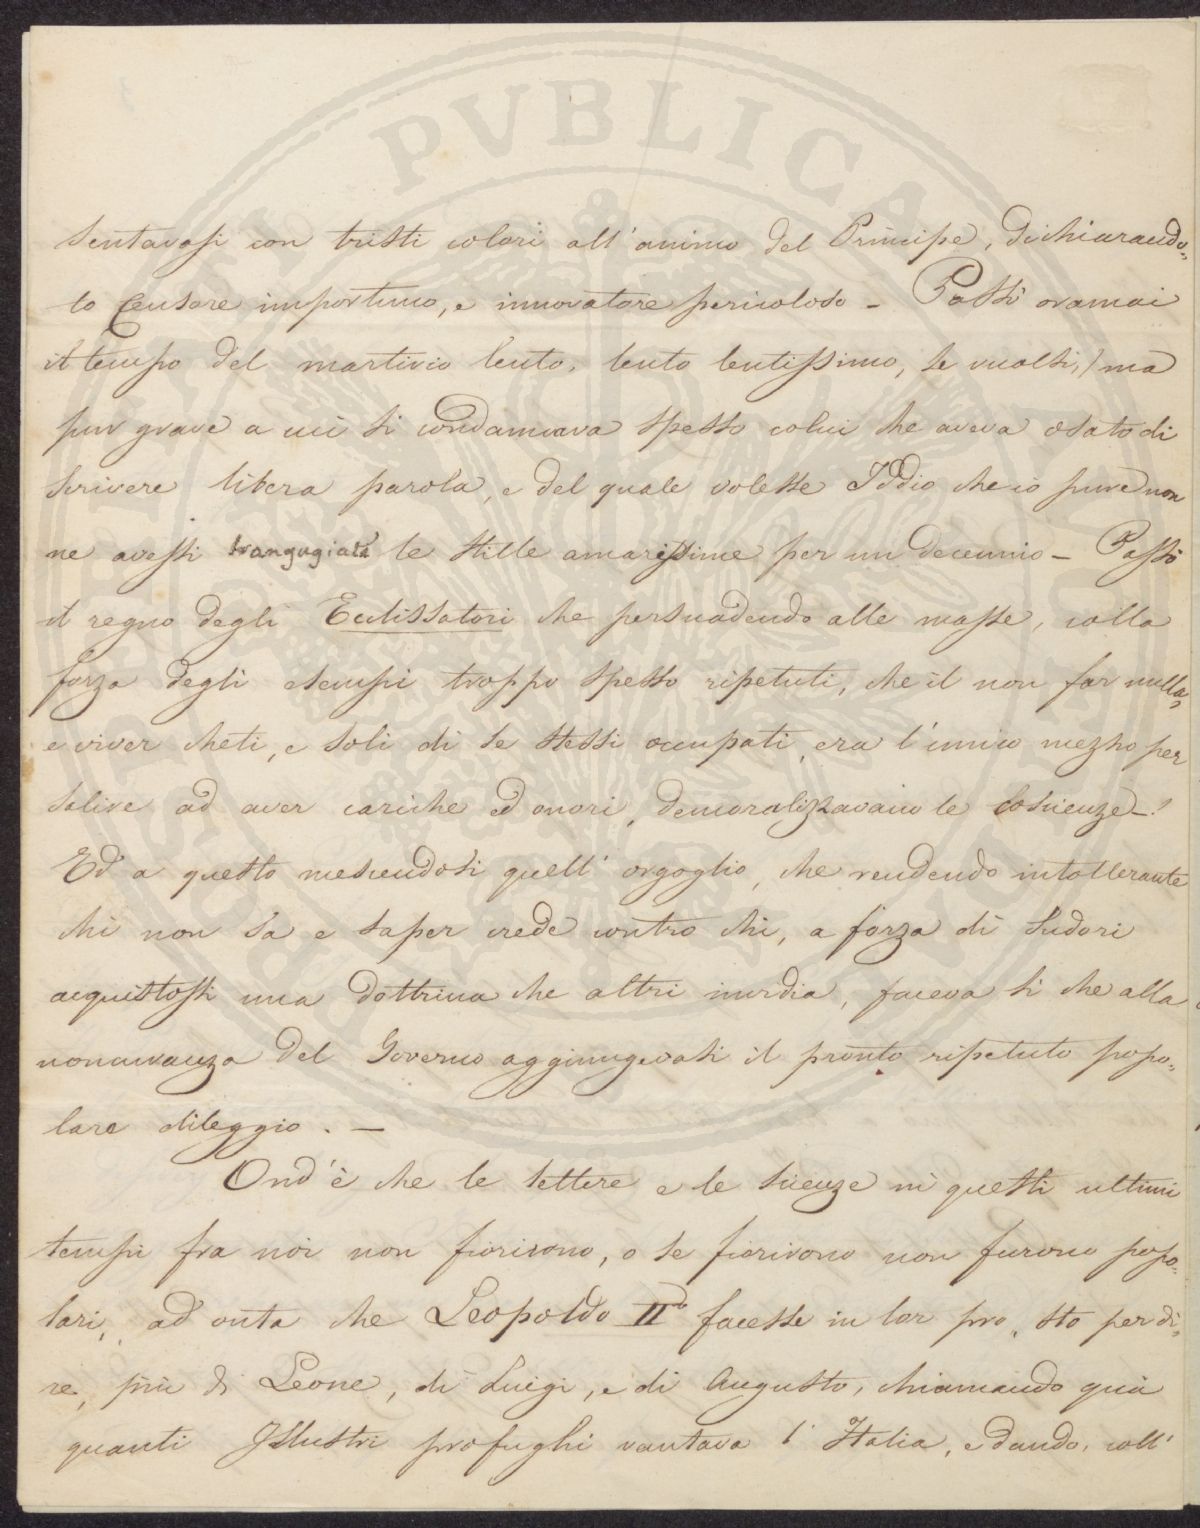 PVBLICA
sentavasi con tristi colori all'animo del Principe, dichiarando-
lo Censore importuno, e innovatore pericoloso - Passò oramai
il tempo del martirio lento, lento lentissimo, se vuolsi, ma
pur grave a cui si condannava spesso colui che aveva osato di
scrivere libera parola, e del quale volesse Iddio che io pure non
ne avessi trangugiata le stille amarissime per un decennio - Passò
il regno degli Eclissatori che persuadendo alle masse, colla
forza degli esempi troppo spesso ripetuti, che il non far nulla,
e viver cheti, e soli di se stessi occupati, era l'unico mezzo per
salire ad aver cariche ed onori, demoralizzavano le Coscienze -!
Ed a questo mescendosi quell'orgoglio, che rendendo intollerante
chi non sa e saper crede contro chi, a forza di sudori
acquistossi una dottrina che altri invidia, faceva sì che alla
noncuranza del Governo aggiungevasi il pronto ripetuto popo-
lare dileggio. -
Ond'è che le lettere e le scienze in questi ultimi
tempi fra noi non fiorirono, o se fiorirono non furono popo-
lari, ad onta che Leopoldo IIº facesse in lor pro, sto per di-
re, più di Leone, di Luigi, e di Augusto, chiamando quà
quanti Illustri profughi vantava l'Italia, e dando, coll'